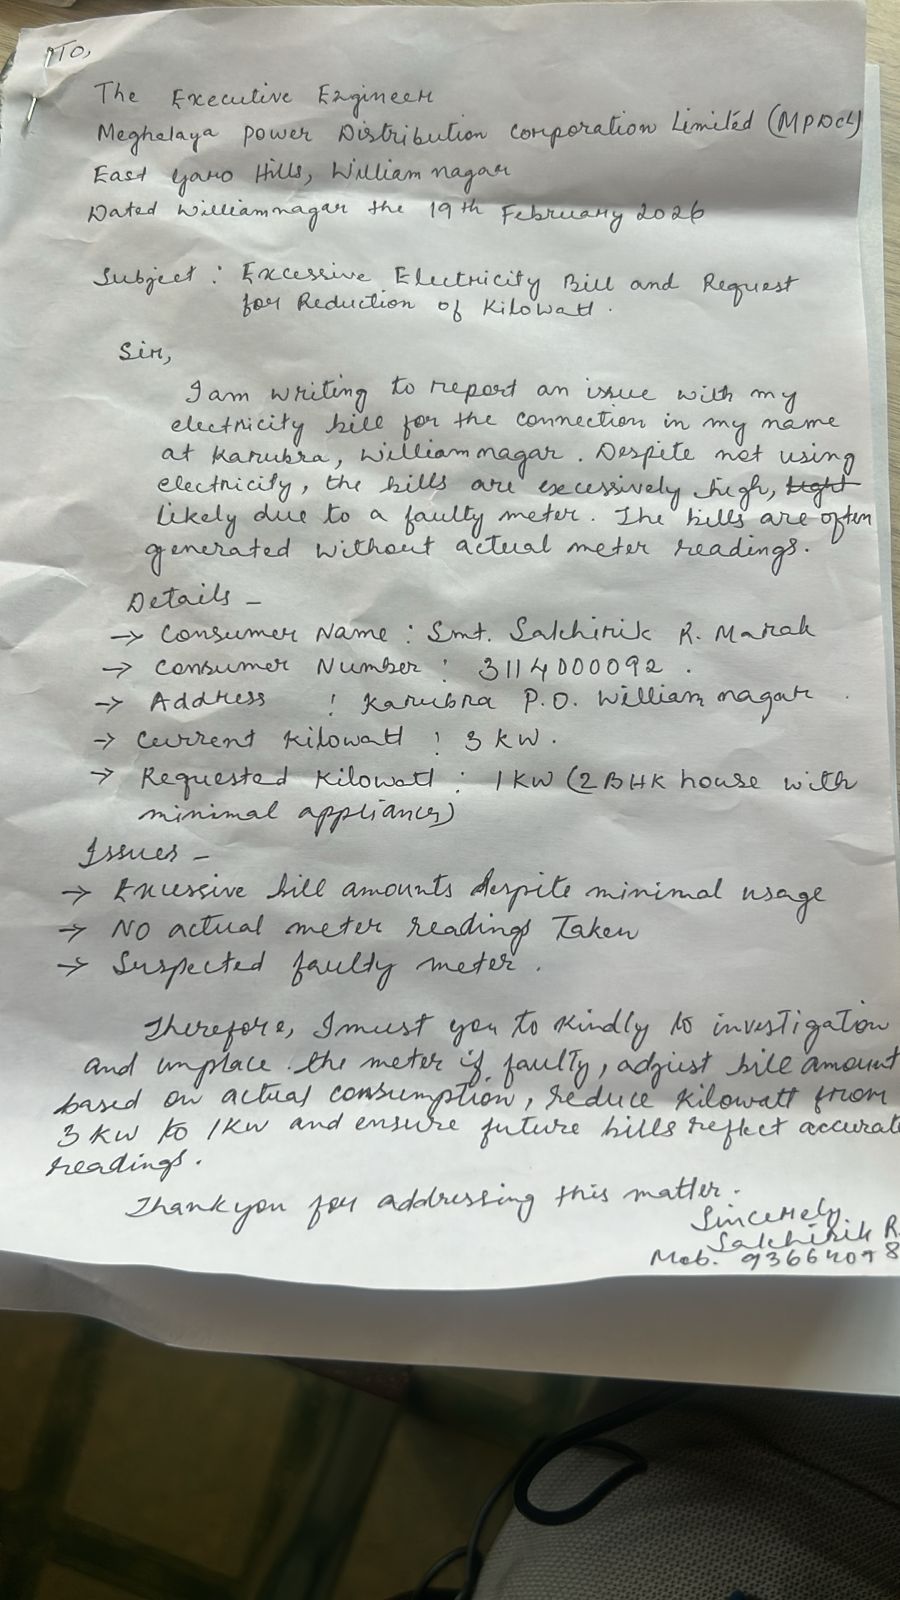 To,
The Executive Engineer
Meghalaya Power Distribution Corporation Limited (MPDCL)
East Garo Hills, Williamnagar
Dated Williamnagar the 19th February 2026
Subject : Excessive Electricity Bill and Request
for Reduction of Kilowatt.
Sir,
I am writing to report an issue with my
electricity bill for the connection in my name
at Karubra, Williamnagar. Despite not using
electricity, the bills are excessively high,
Likely due to a faulty meter. The bills are often
generated without actual meter readings.
Details -
→ Consumer Name : Smt. Sakhirik R. Marak
→ Consumer Number : 3114000092.
→ Address : Karubra P.O. Williamnagar.
→ Current Kilowatt : 3 kW.
→ Requested Kilowatt : 1 KW (2 BHK house with
minimal appliances)
Issues -
→ Excessive bill amounts despite minimal usage
→ No actual meter readings Taken
→ Suspected faulty meter.
Therefore, I must you to kindly to investigation
and the meter if faulty, adjust bill amount
based on actual consumption, reduce Kilowatt from
3 KW to 1 KW and ensure future bills reflect accurate
readings.
Thank you for addressing this matter.
Sincerely
Sakhirik R.
Mob.